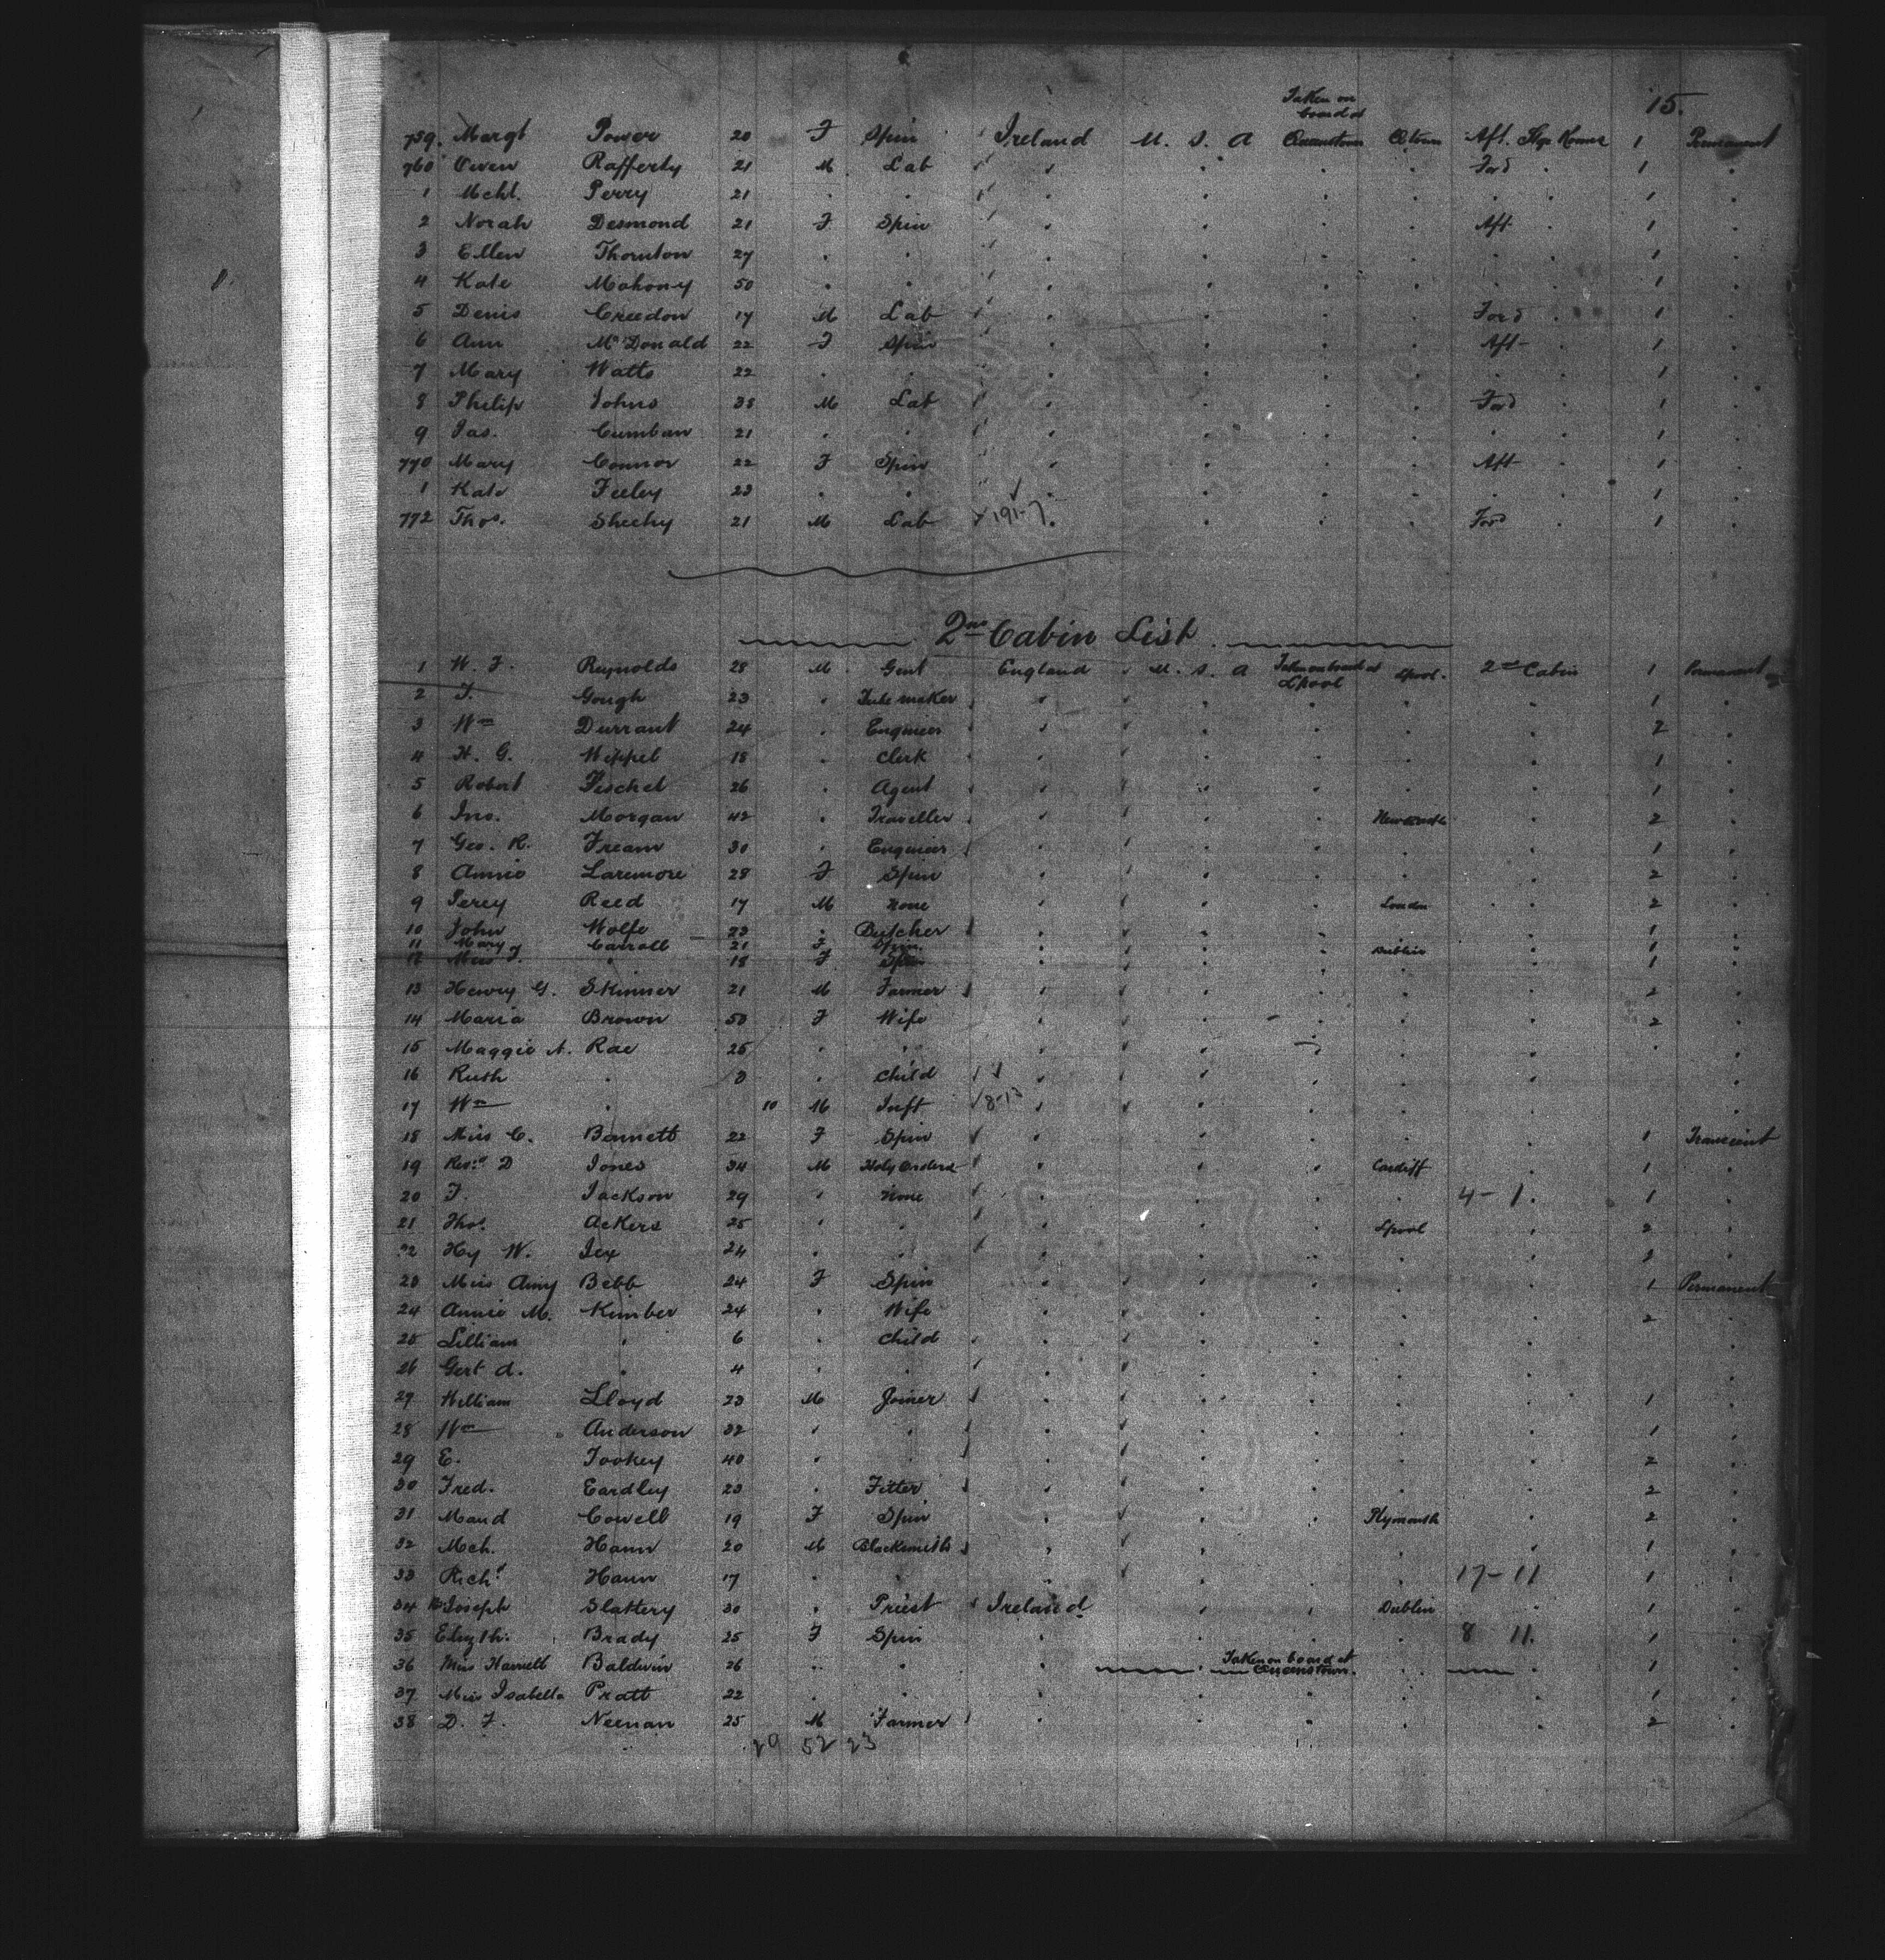 15.
Taken on board at
759. Margt Power 20 F Spin Ireland U. S. A Queenstown Qtown Aft. Stge 1 Permanent
760 Owen Rafferty 21 M Lab " " " " Ford " 1 "
1 Mchl. Perry 21 " " " " " " " " 1 "
2 Norah Desmond 21 F Spin " " " " Aft " 1 "
3 Ellen Thornton 27 " " " " " " " " 1 "
4 Kate Mahony 50 " " " " " " " " 1 "
5 Denis Creedon 17 M Lab " " " " Ford " 1 "
6 Ann McDonald 22 F Spin " " " " Aft " 1 "
7 Mary Watts 22 " " " " " " " " 1 "
8 Philip Johns 35 M Lab " " " " Ford " 1 "
9 Jas. Cumban 21 " " " " " " " " 1 "
770 Mary Connor 22 F Spin " " " " Aft " 1 "
1 Kate Feeley 23 " " " " " " " " 1 "
772 Thos. Sheehy 21 M Lab 191-7 " " " " Ford " 1 "
2nd Cabin List
1 W. F. Reynolds 28 M. Gent England U. S. A Taken on board at Lpool Lpool. 2nd Cabin 1 Permanent
2 F. Gough 23 " Tube maker " " " " " 1 "
3 Wm Durrant 24 " Engineer " " " " " 2 "
4 H. G. Weppel 18 " Clerk " " " " " 1 "
5 Robert Fischel 26 " Agent " " " " " 1 "
6 Jno. Morgan 42 " Traveller " " " " 2 "
7 Geo. R. Fream 30 " Engineer " " " " " 1 "
8 Annie Laremore 28 F Spin " " " " " 2 "
9 Percy Reed 17 M None " " " London " 2 "
10 John Wolfe 23 " Butcher " " " " " 1 "
11 Mary J Carroll 21 F Spin. " " " Dublin " 1 "
12 Miss J. " 18 F Spin " " " " " 1 "
13 Henry G. Skinner 21 M Farmer " " " " " 2 "
14 Maria Brown 50 F Wife " " " " " 2 "
15 Maggie A. Rae 25 " " " " " " " " "
16 Ruth " 3 " Child " " " " " "
17 Wm " 10 M Inft 8-13 " " " " " "
18 Miss C. Bennett 22 F Spin " " " " " 1 Transcient
19 Revd. D Jones 34 M Holy Orders " " " Cardiff " 1 "
20 F. Jackson 29 " None " " " " 4-1. 1 "
21 Thos. Ackers 25 " " " " " Lpool " 2 "
22 Hy W. Jex 24 " " " " " " " 2 "
23 Miss Amy Bebb 24 F Spin " " " " " 1 Permanent
24 Annie M. Kimber 24 " Wife " " " " " 2 "
25 Lilliam " 6 " Child " " " " " "
26 Gert A. " 4 " " " " " " " "
27 William Lloyd 23 M Joiner " " " " " 1 "
28 Wm Anderson 32 " " " " " " " 1 "
29 E. Tookey 40 " " " " " " " 2 "
30 Fred. Eardley 23 " Fitter " " " " " 2 "
31 Maud Cowell 19 F Spin " " " Plymouth " 2 "
32 Mch. Hann 20 M Blacksmith " " " " " 1 "
33 Richd. Hann 17 " " " " " " 17-11 1 "
34 Joseph Slattery 30 " Priest Ireland " " Dublin " 1 "
35 Elizth. Brady 25 F Spin " " " " 8 11. 1 "
36 Miss Harriett Baldwin 26 " " " Taken on board at Queenstown. " 1 "
37 Miss Isabella Pratt 22 " " " " " " " 1 "
38 D. F. Neenan 25 M Farmer " " " " " 2 "
29 52 23